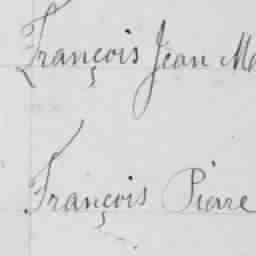 François Jean Ma
François Pierre